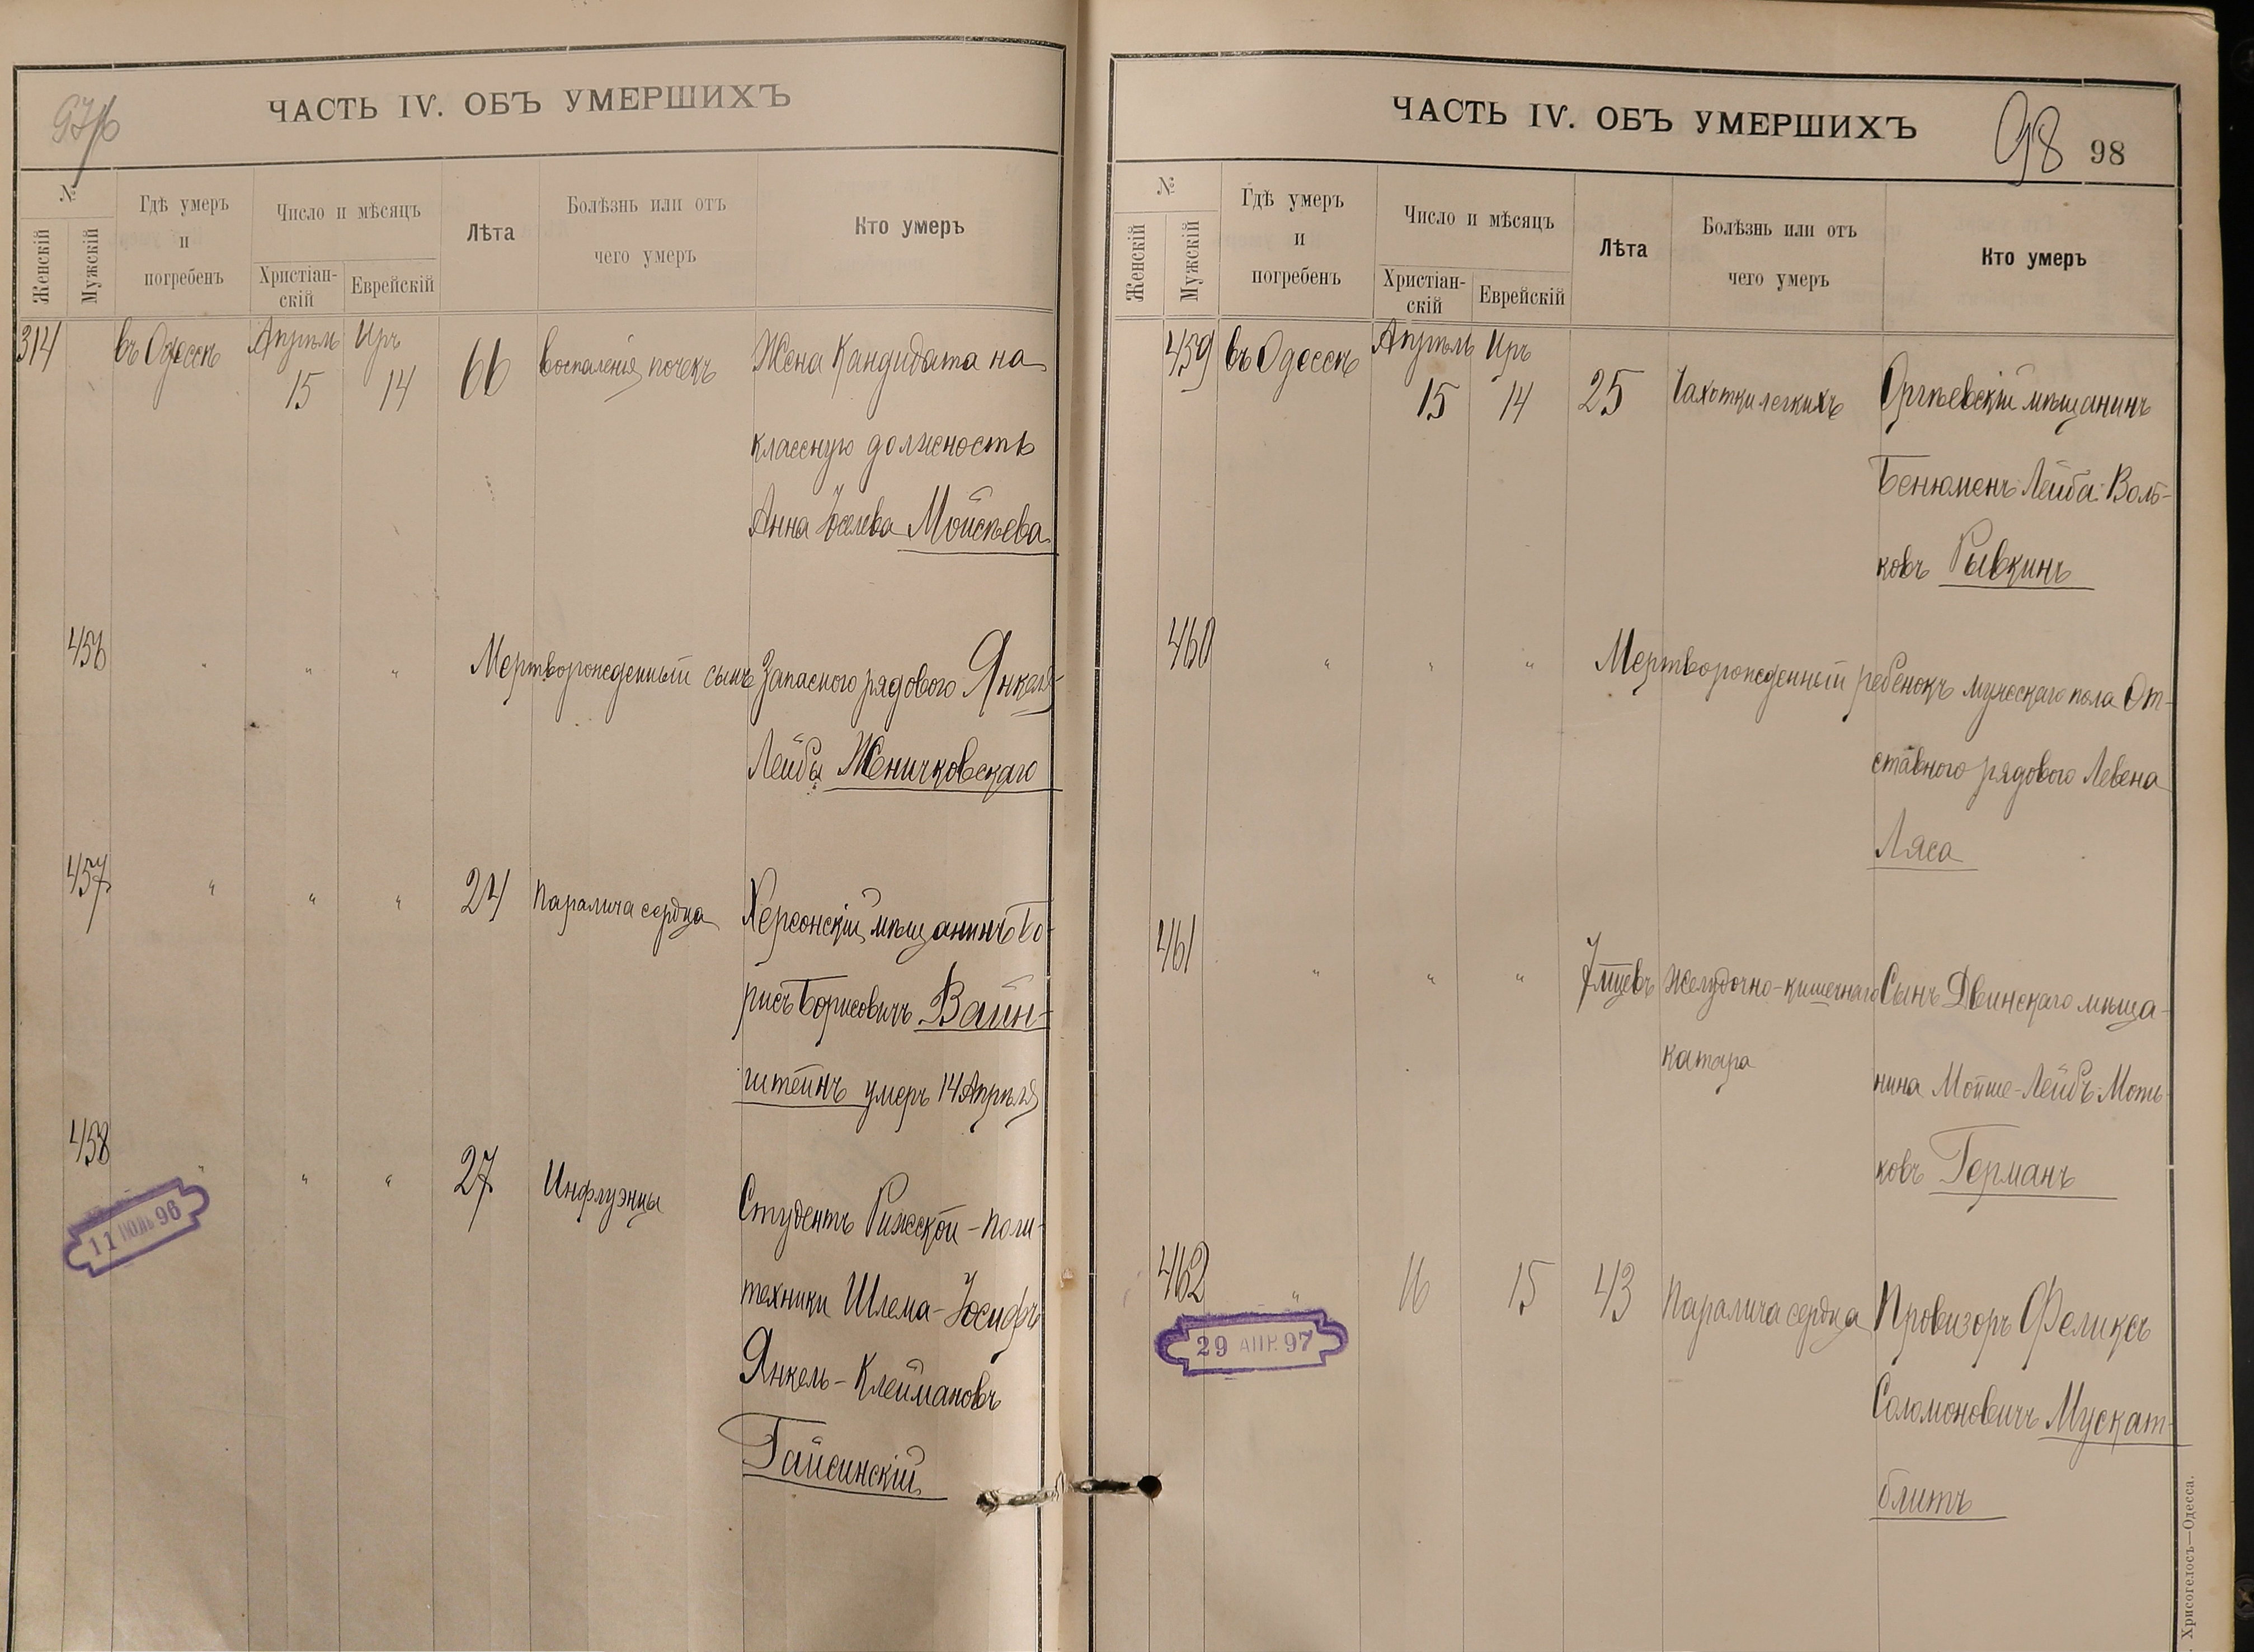 97/б
ЧАСТЬ IV. ОБЪ УМЕРШИХЪ
№
Женскій
Мужскій
Гдѣ умеръ
и
погребенъ
Число и мѣсяцъ
Христіан-
скій
Еврейскій
Лѣта
Болѣзнь или отъ
чего умеръ
Кто умеръ
314 въ Одессѣ Апрѣль Иръ 66 воспаленія почекъ Жена Кандидата на
15 14
классную должность
Анна Іоселева Мойсѣева
456 " " " Мертворожденный сынъ Запаснаго рядового Янкеля-
Лейбы Женичковскаго
457 " " " 24 Паралича сердца Херсонскій мѣщанинъ Бо-
рисъ Борисовичъ Вайн-
штейнъ умеръ 14 Апрѣля
458 " " " 27 Инфлуэнцы Студентъ Рижской-Поли-
техники Шлема-Іосифъ
Янкель-Клеймановъ
Гайсинскій
11 ІЮЛЬ 96
ЧАСТЬ IV. ОБЪ УМЕРШИХЪ
98
98
№
Женскій
Мужскій
Гдѣ умеръ
и
погребенъ
Число и мѣсяцъ
Христіан-
скій
Еврейскій
Лѣта
Болѣзнь или отъ
чего умеръ
Кто умеръ
459 въ Одессѣ Апрѣль Иръ
15 14 25 Чахотки легкихъ Оргѣевскій мѣщанинъ
Бенюменъ Лейба Воль-
ковъ Рывкинъ
460 " " " Мертворожденный ребенокъ мужескаго пола От-
ставного рядового Левена
Ляса
461 " " " 7 мцевъ Желудочно-кишечнаго Сынъ Двинскаго мѣща-
катара
нина Мойше-Лейбъ Моть-
ковъ Германъ
462 " 16 15 43 Паралича сердца Провизоръ Феликсъ
Соломоновичъ Мускат-
блитъ
29 АПР. 97
Хрисогелосъ—Одесса.